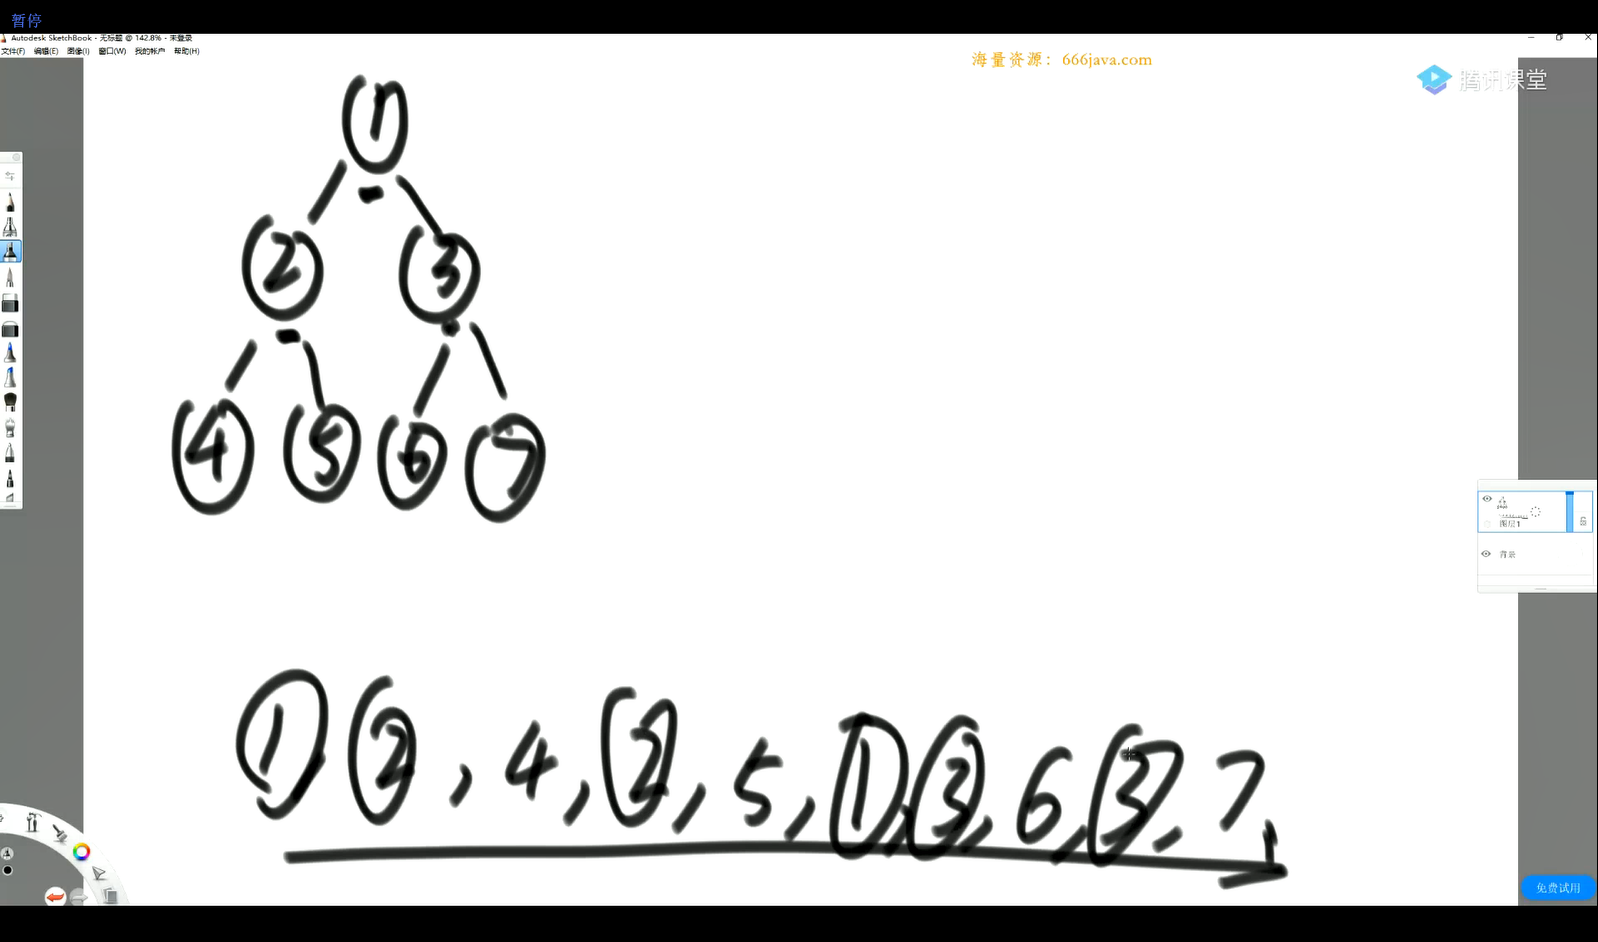 暂停
Autodesk SketchBook - 无标题 @ 142.8% - 未登录
文件(F) 编辑(E) 图像(I) 窗口(W) 我的帐户 帮助(H)
海量资源：666java.com
腾讯课堂
1
2 3
4 5 6 7
图层1
背景
1 2 , 4 , 2 , 5 , 1 , 3 , 6 , 3 , 7
免费试用